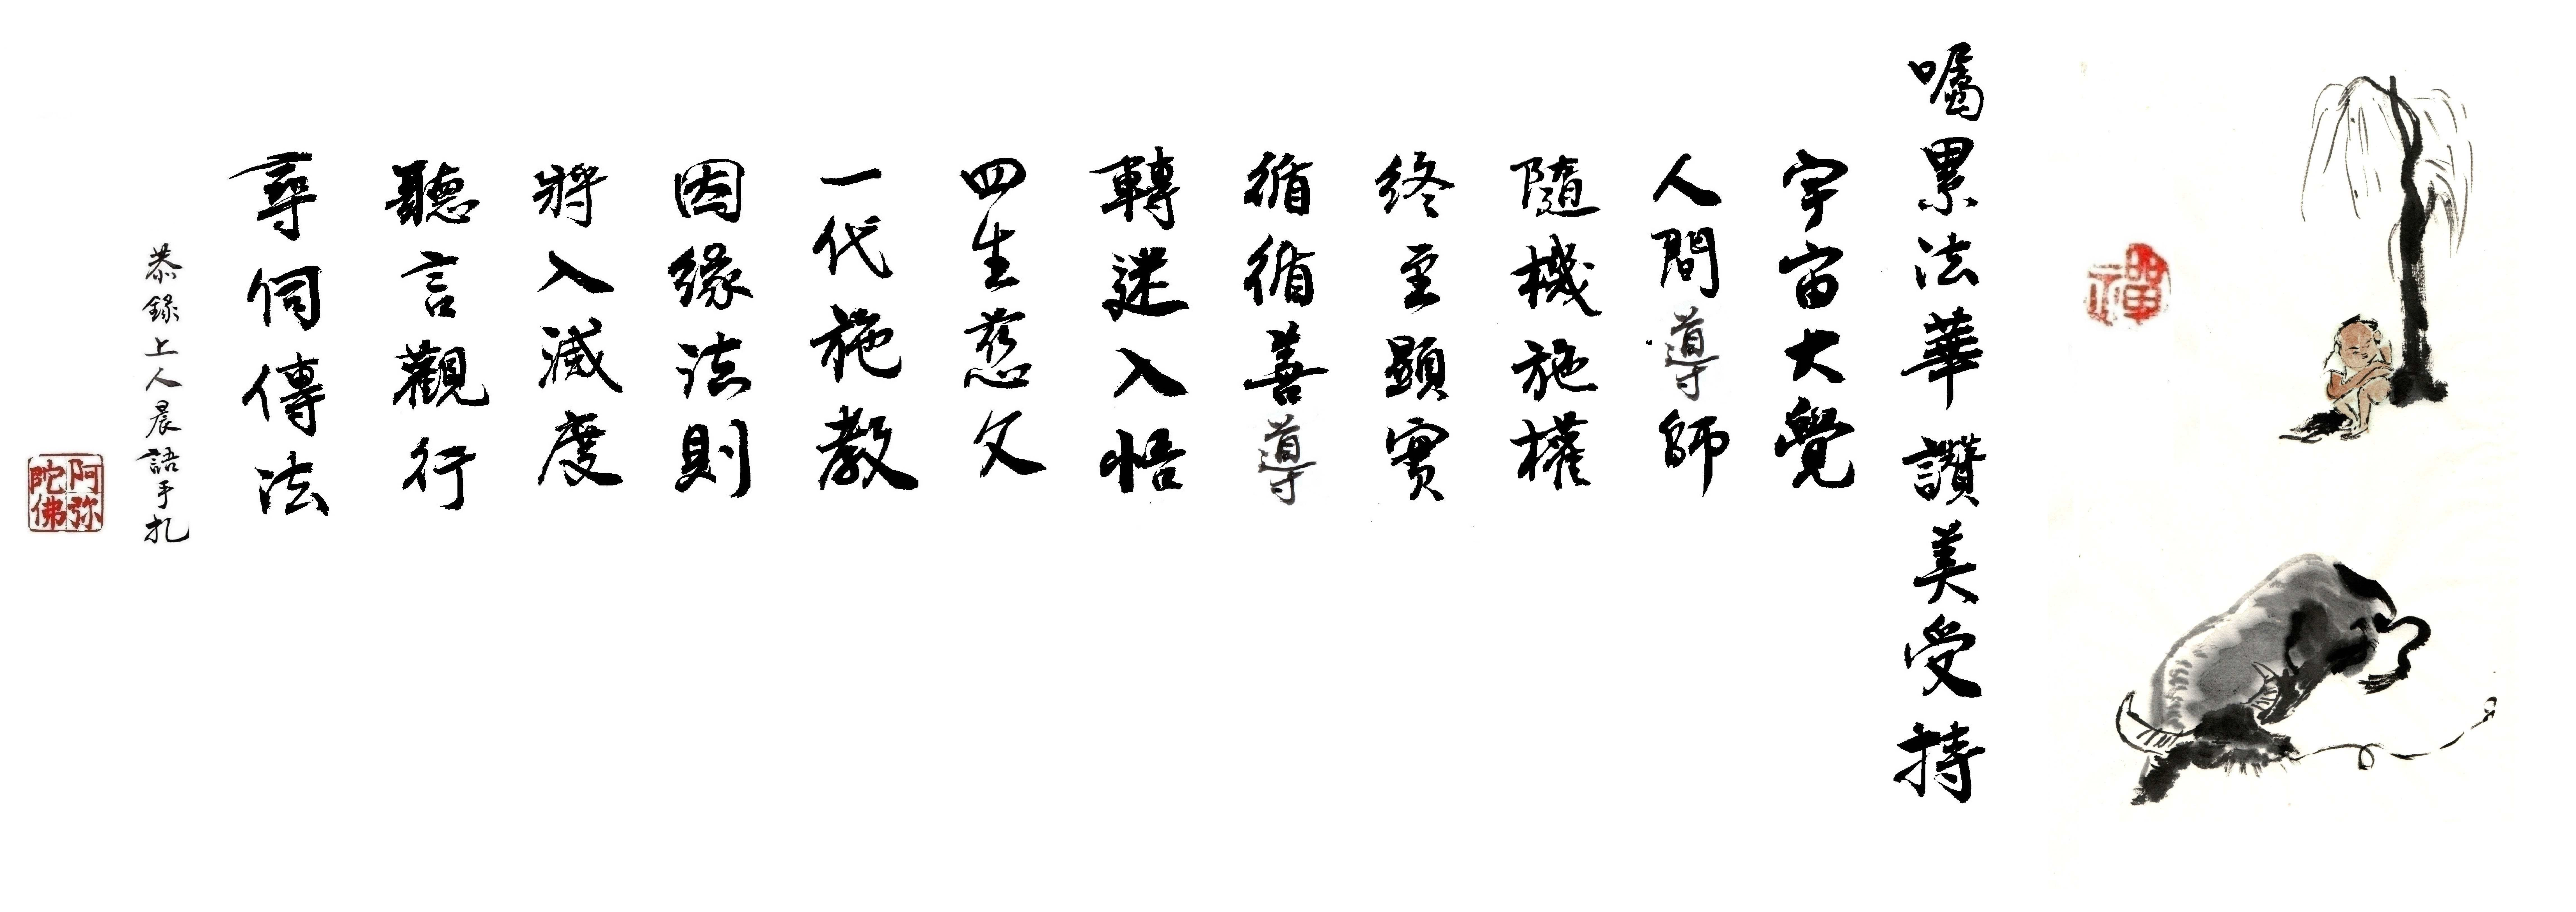 禪
囑累法華 讚美受持
宇宙大覺
人間導師
隨機施權
終至顯實
循循善導
轉迷入悟
四生慈父
一代施教
因緣法則
將入滅度
聽言觀行
尋伺傳法
恭錄上人晨語手札
阿弥
陀佛